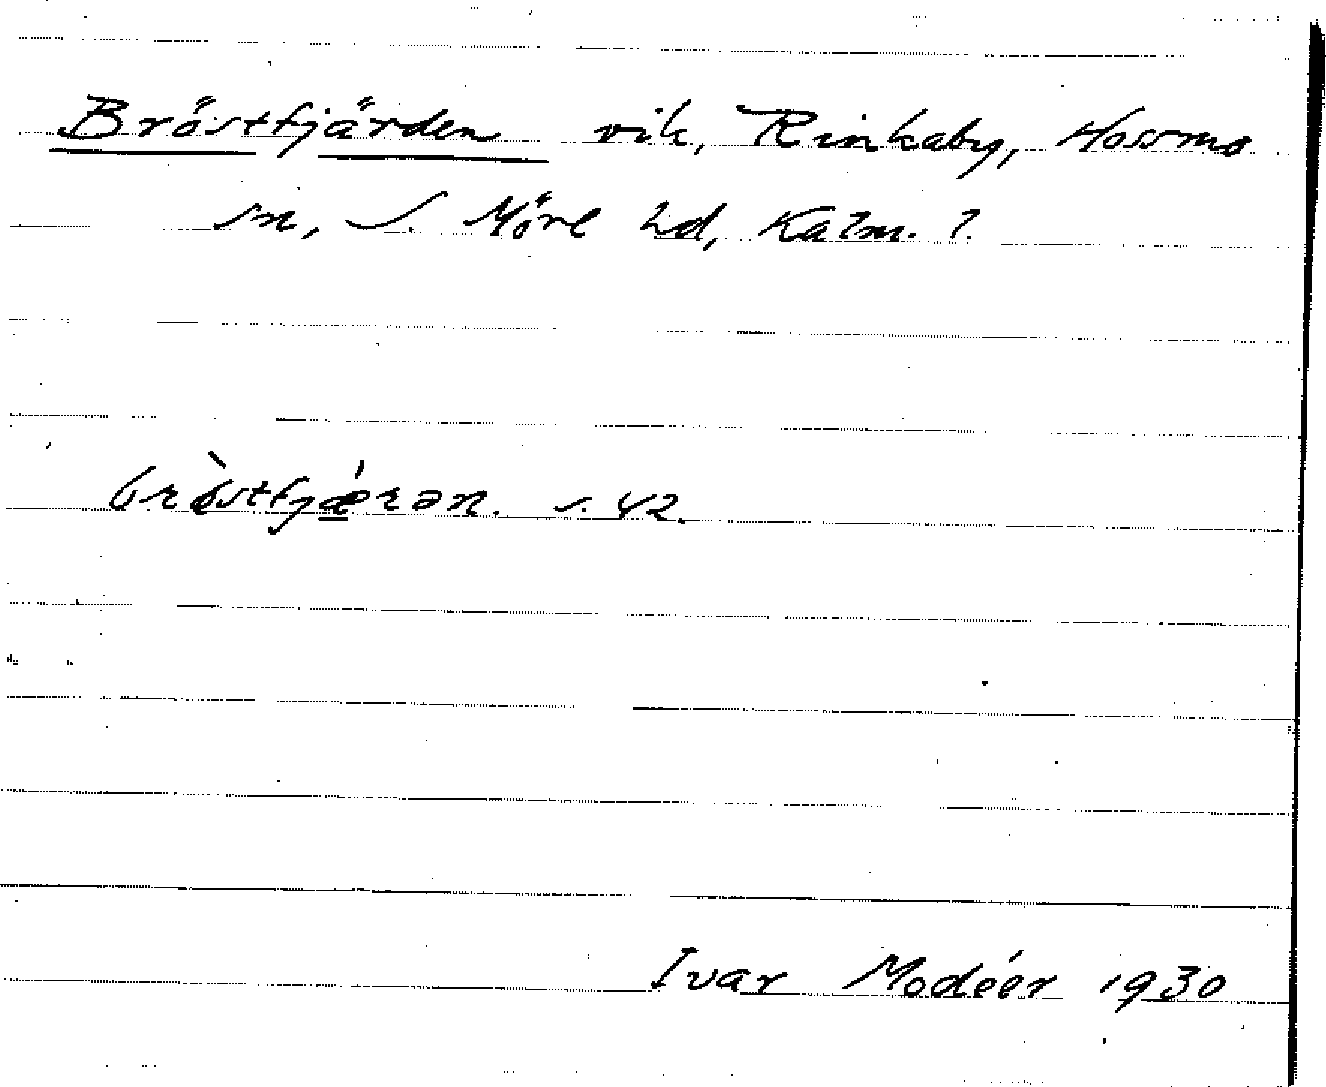 Bröstfjärden vik, Rinkaby, Hossmo
sn, S. Möre hd, Kalm. l.
bròstfjǽrən. s. 42.
Ivar Modéer 1930